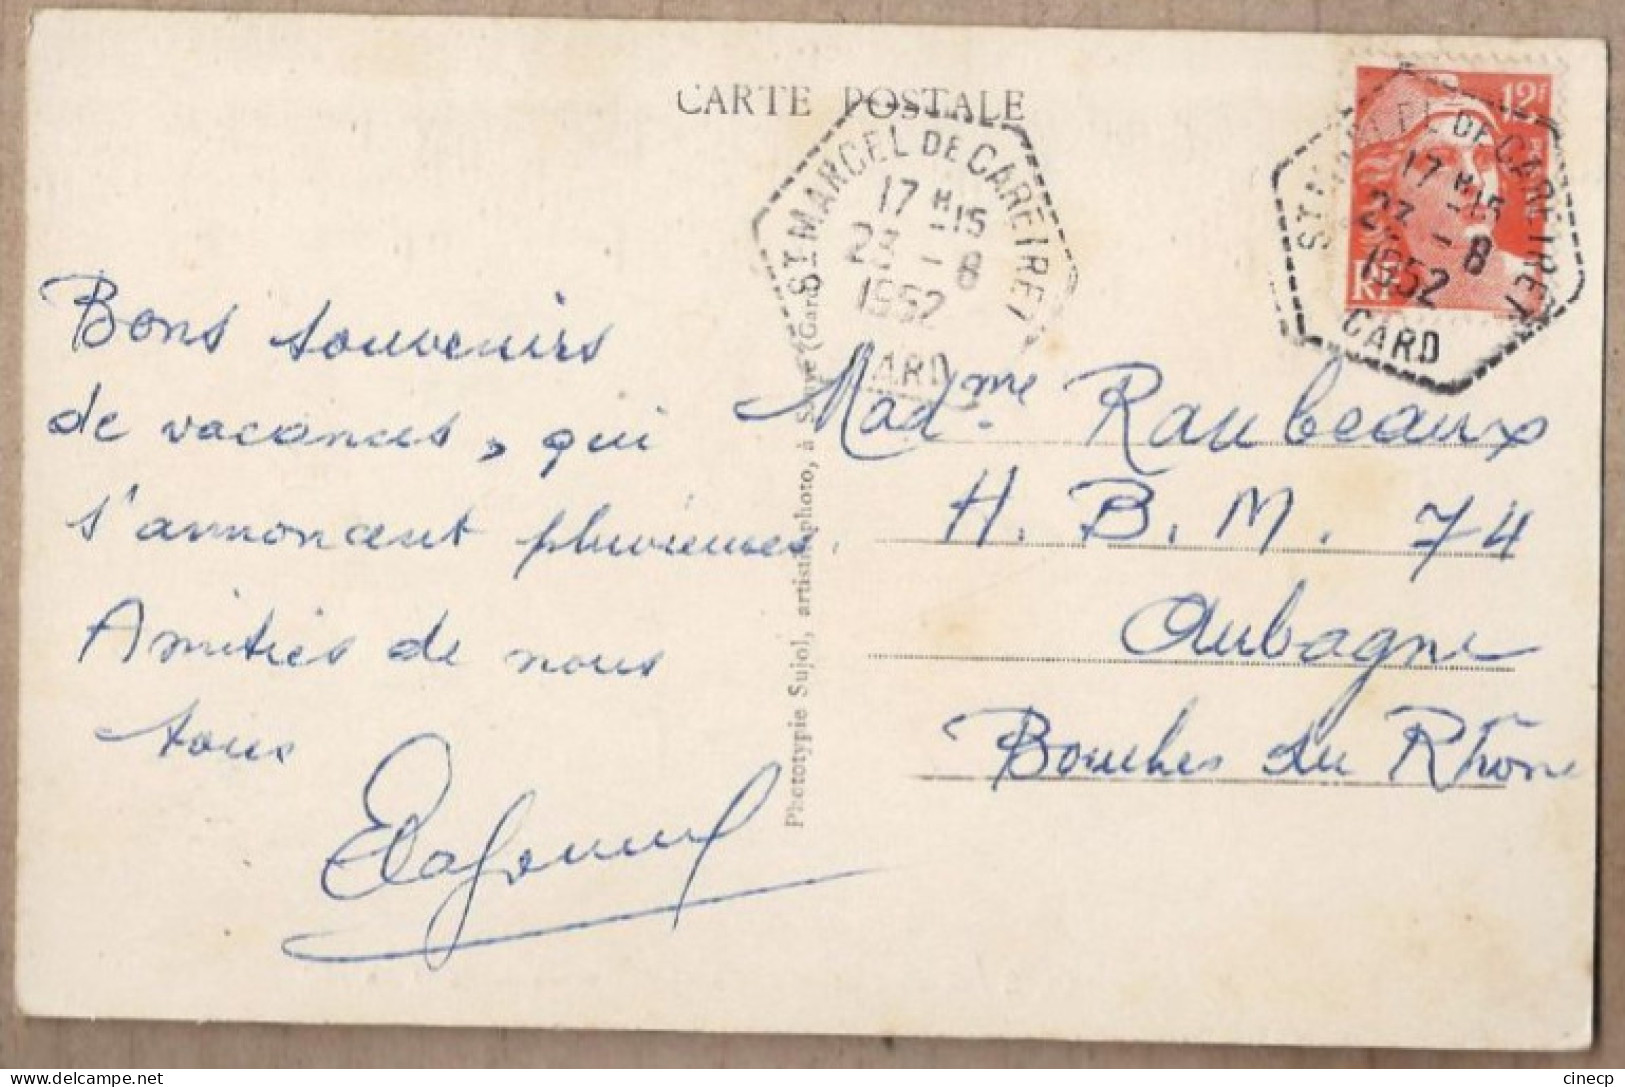 CARTE POSTALE
ST MARCEL DE CAREIRET
17 H 15
23 - 8
1952
GARD
12F
RF
ST MARCEL DE CAREIRET
17 H 15
23 - 8
1952
GARD
Bons souvenirs
de vacances, qui
s'annoncent pluvieuses.
Amitiés de nous
tous
Phototypie Sujol, artisan-photo, à Sauve (Gard)
Mad.me Raubeaux
H. B. M. 74
Aubagne
Bouches du Rhône
cinecp